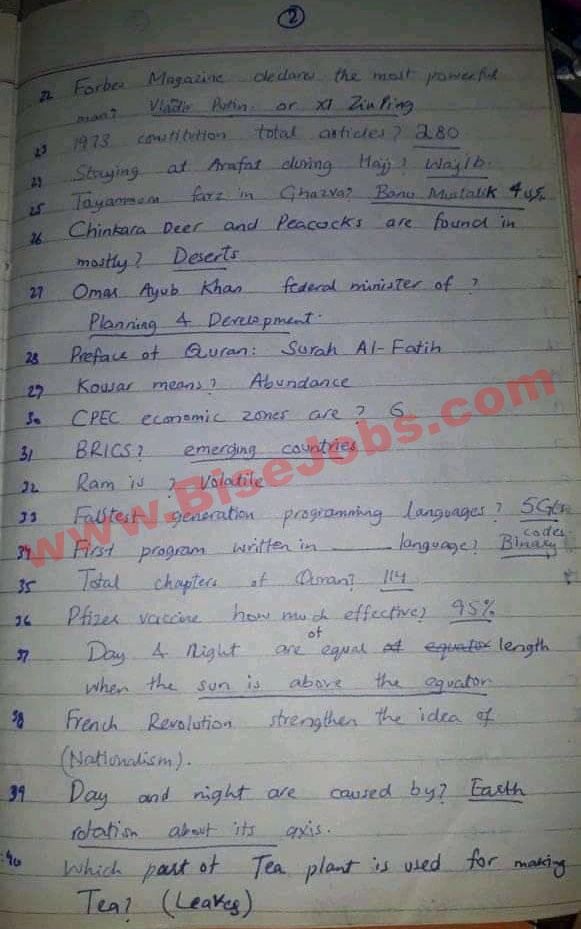 2
22 Forbes Magazine declares the most powerful
man? Vladir Putin or XI Zin Ping
23 1973 constitution total articles? 280
24 Staying at Arafat during Hajj? Wajib.
25 Tayammom farz in Ghazva? Banu Mustalik 4
26 Chinkara Deer and Peacocks are found in
mostly? Deserts
27 Omar Ayub Khan federal minister of?
Planning & Development.
28 Preface of Quran: Surah Al-Fatih
29 Kowsar means? Abundance
30 CPEC economic zones are? 6
31 BRICS? emerging countries
32 Ram is? Volatile
33 Falstest generation programming languages? 5G
34 First program written in ___ language? Binary codes
35 Total chapters of Quran? 114
36 Pfizer vaccine how much effective? 95%
37 Day & Night are of equal at equator length
when the sun is above the equator
38 French Revolution strengthen the idea of
(Nationalism).
39 Day and night are caused by? Earth
rotation about its axis.
40 Which part of Tea plant is used for making
Tea? (Leakes)
www.BiseJobs.com